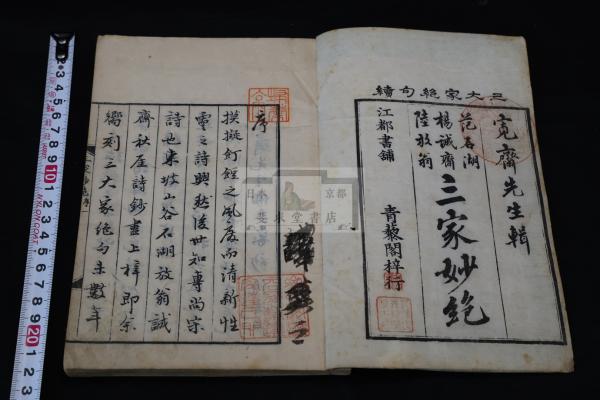 三大家絶句續
寛齋先生輯
范石湖
楊誠齋
陸放翁
三家妙絶
江都書鋪
青藜閣梓行
序
摸擬飣餖之風廢而清新性
靈之詩興然後世知專尚宋
詩也東坡山谷石湖放翁誠
齋秋厓詩鈔盡上梓即余
嚮刻三大家絶句未數年
日本 京都
斐東堂書店
2 3 4 5 6 7 8 9 10 1 2 3 4 5 6 7 8 9 20 1 2
NYLON COAT